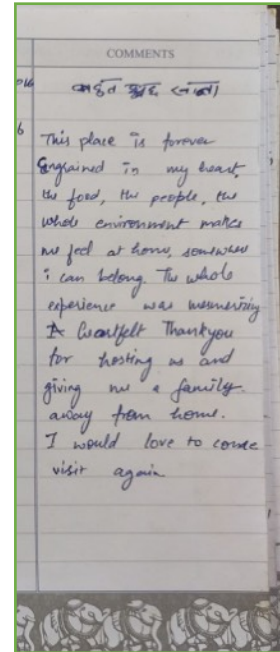 COMMENTS
016
6
This place is forever
Engrained in my heart,
the food, the people, the
whole environment makes
me feel at home, somewhere
i can belong. The whole
experience was mesmerizing
A heartfelt Thankyou
for hosting us and
giving me a family
away from home.
I would love to come
visit again